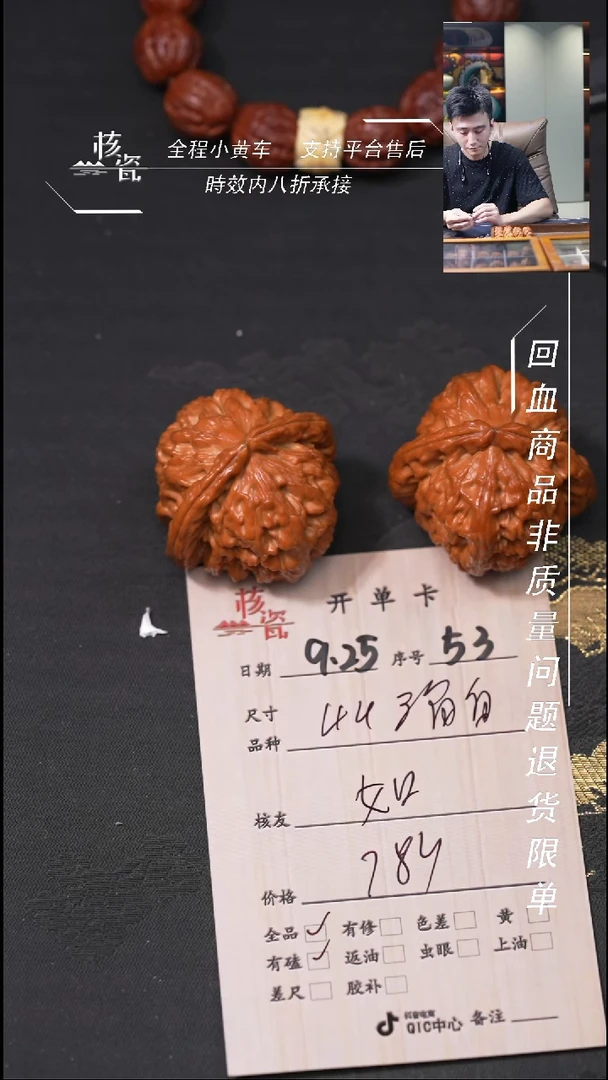 核瓷
全程小黄车 支持平台售后
時效内八折承接
回血商品非质量问题退货限单
核瓷
开单卡
日期 9.25 序号 53
尺寸 44
品种
核友 如
价格 784
全品 有修 色差 黄
有磕 返油 虫眼 上油
差尺 胶补
抖音电商
QIC中心 备注